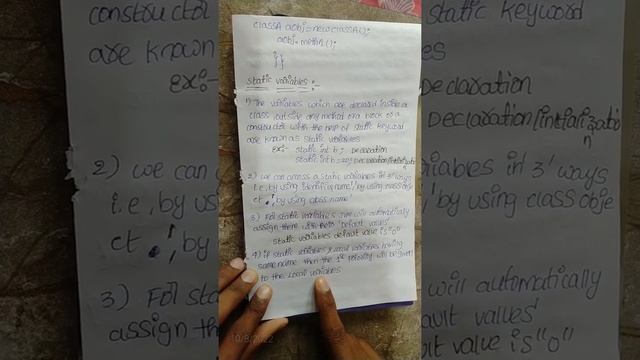 classA aobj = new classA();
aobj.meth1();
}}
static variables :-
1) The variables which are declared inside a
class outside any method or a block or a
constructor with the help of static keyword
are known as static variables
Ex:- static int b; Declaration
static int b=20; Declaration/intialization
2) we can access a static variables in 3' ways
i.e, by using identifier name', by using class obje
ct ', by using class name'
3) For static variables JVM will automatically
assign them with their 'default values'
static variables default value is "0"
4) if static variables & Local variables having
same name then the 1st priority will be given
to the Local variables
10/8/2022
constructor
are known
Ex:-
2) we can
i.e, by us
ct . ',' by
3) For sta
assign th
static keyword
es
Declaration
Declaration/intializatio
n
ariables in 3' ways
'by using class obje
will automatically
ault values'
ult value is "0"